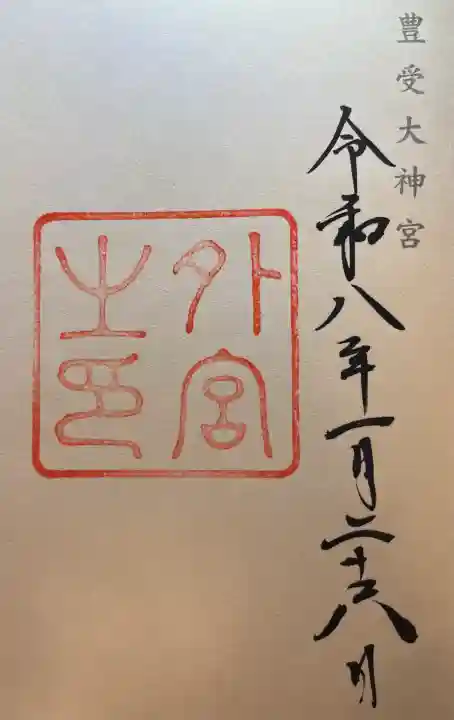 豊受大神宮
令和八年一月二十六日
外宮
之印